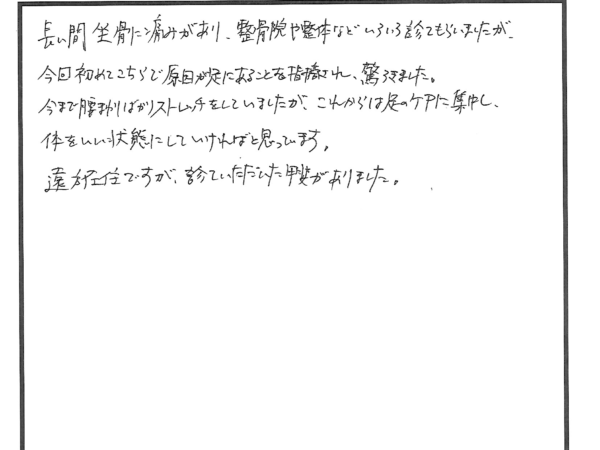 長い間 坐骨に痛みがあり、整骨院や整体などいろいろ診てもらいましたが、
今回初めてこちらで原因が足にあることを指摘され、驚ろきました。
今まで腰まわりばかりストレッチをしていましたが、これからは足のケアに集中し、
体をいい状態にしていければと思っています。
遠方在住ですが、診ていただいた甲斐がありました。